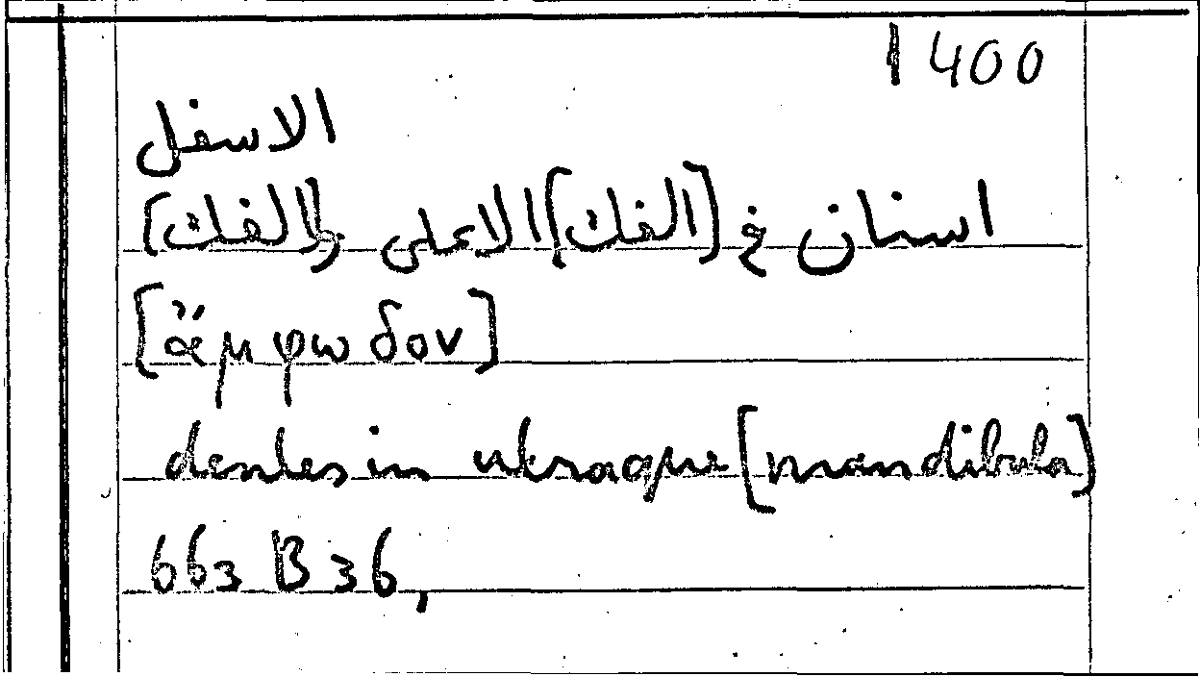 1400
الاسفل
اسنان في [الفك] الاعلى و[الفك]
[ἄμφωδον]
dentes in utraque [mandibula]
663 B 36,